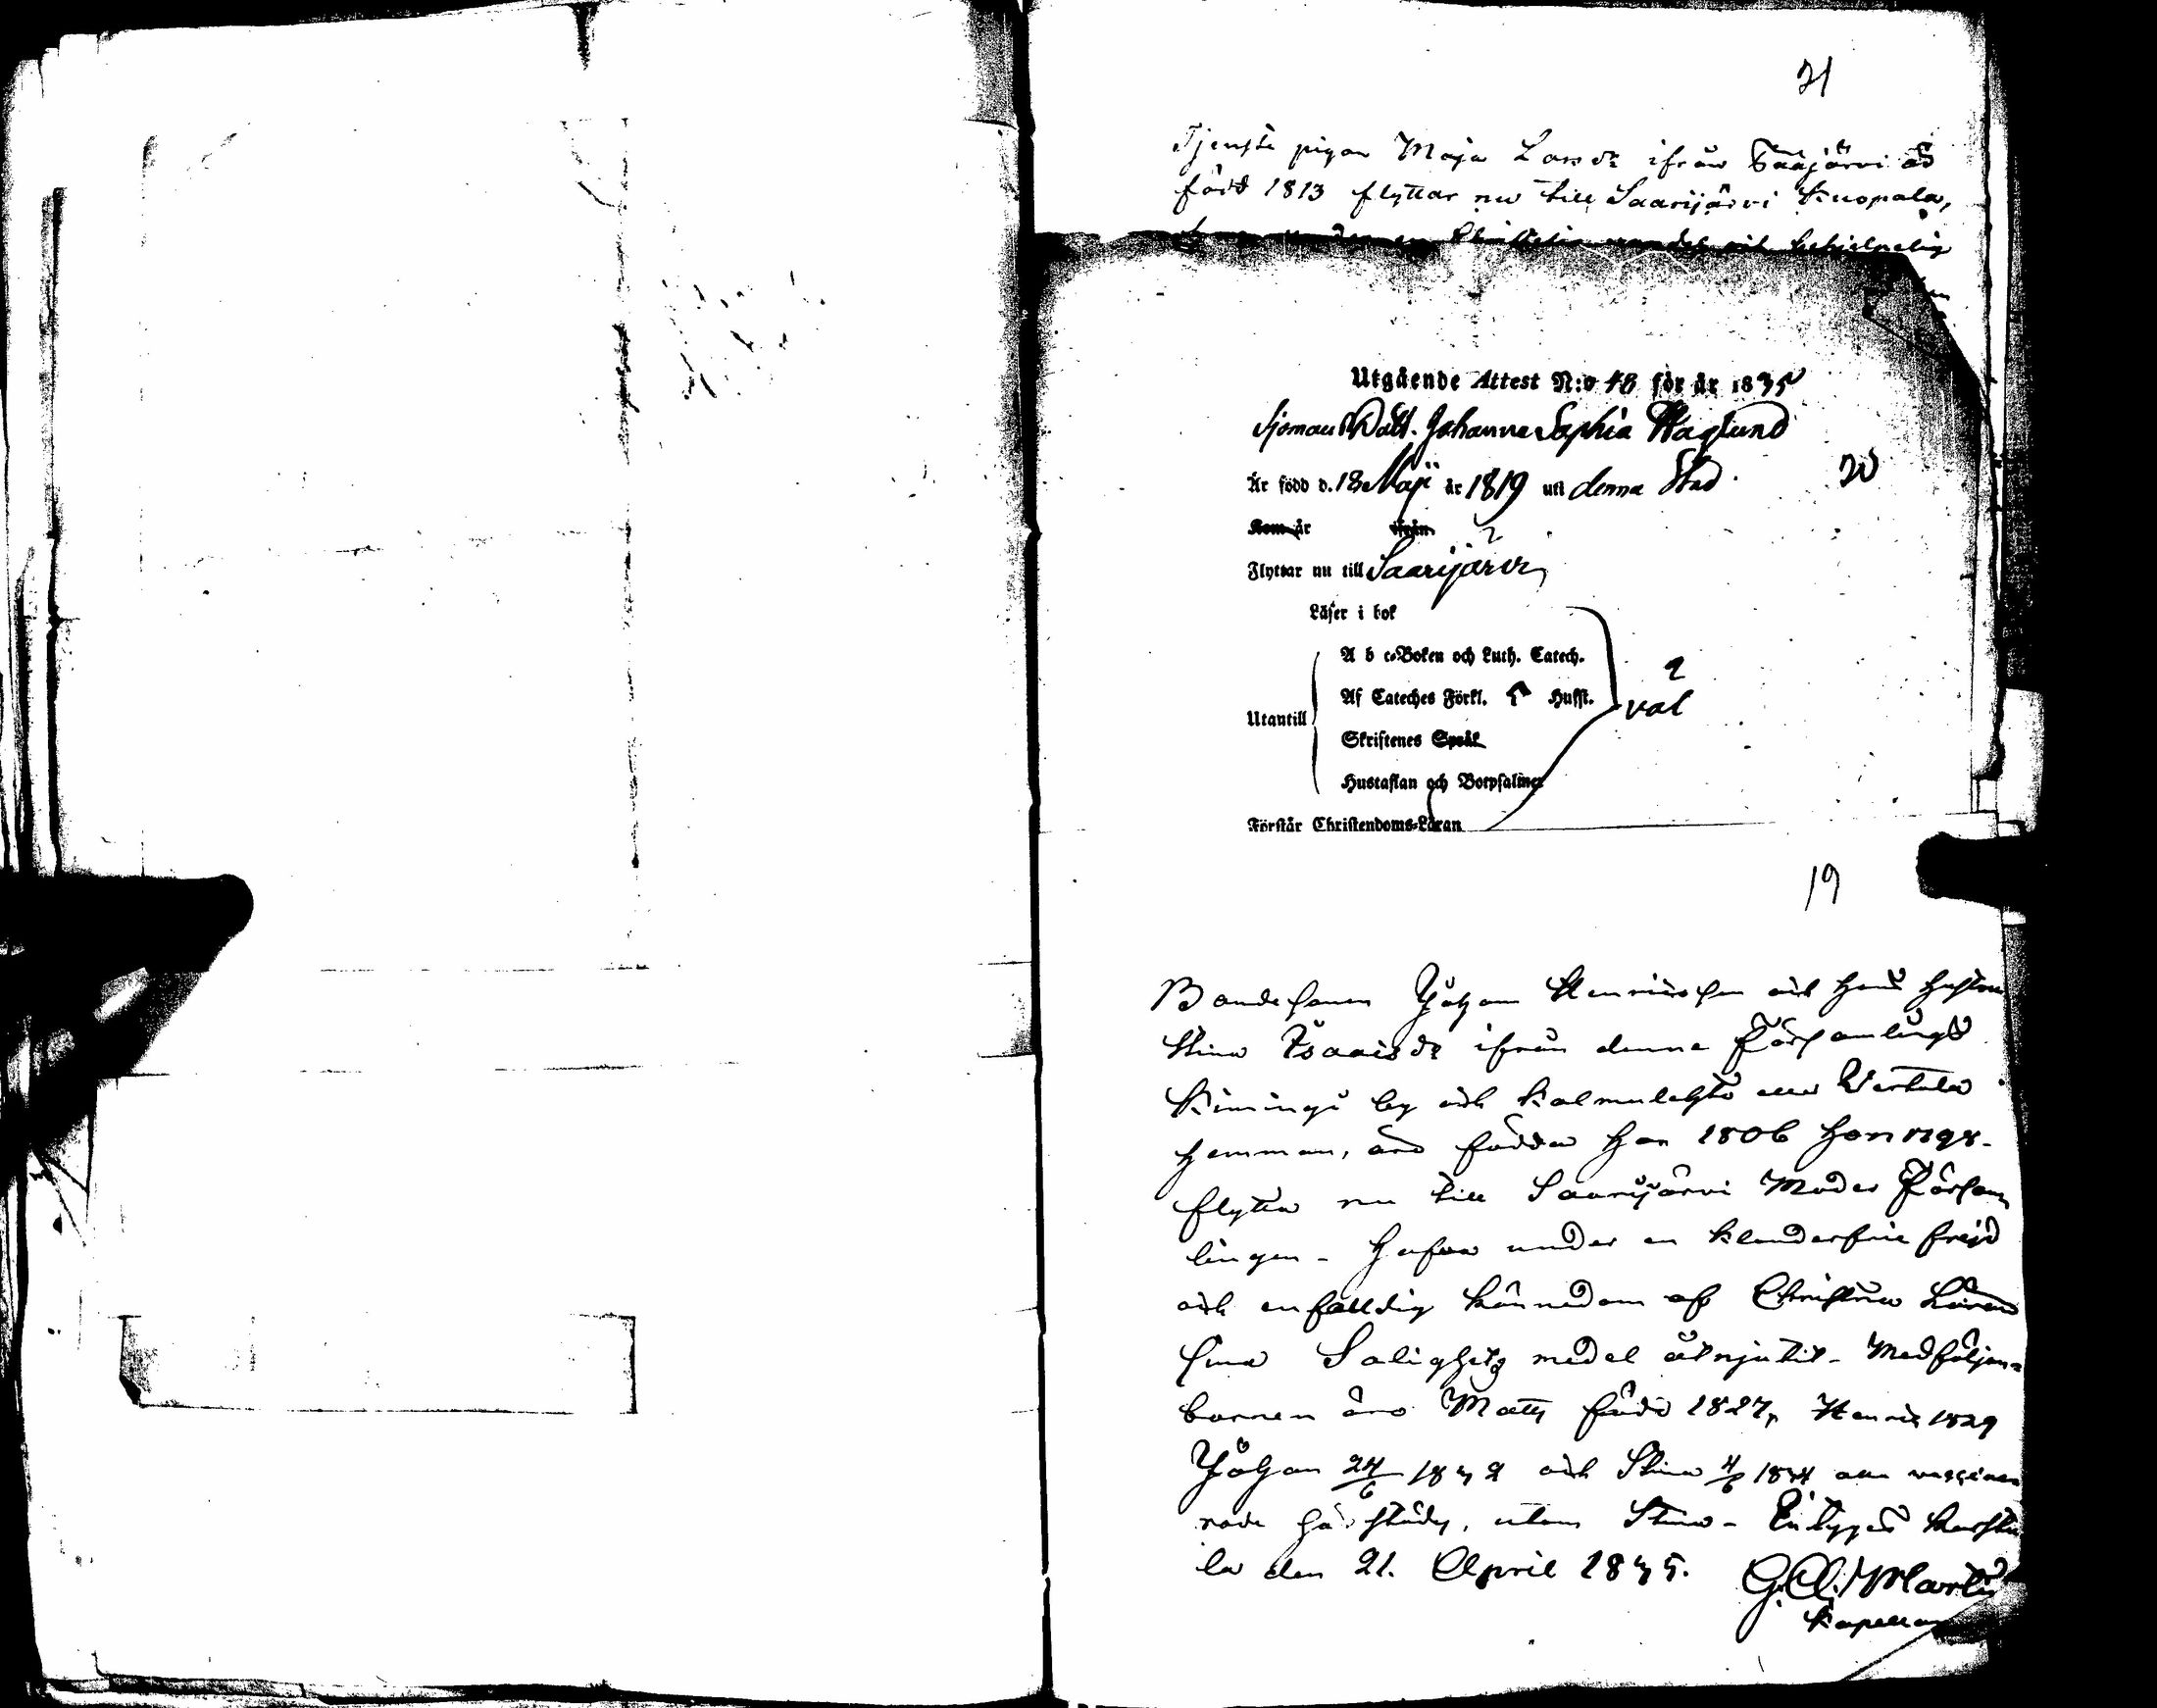 21
Tjenste pigan Maja Larsdr ifrån Saajärvi är
född 1813 flyttar nu till Saarijärvi Kuopala,
wandel och behjelpelig
Utgående Attest N:o 48 för år 1835
Sjöman Dott. Johanna Sophia Haglund
Är född d. 18 Maji år 1819 uti denna Stad.
20
Kom år ifrån
Flyttar nu till Saarijärvi
Läser i bok
A b c-Boken och Luth. Catech.
Af Cateches Förkl. Hufft.
val
Utantill
Skriftenes Språk
Hustaflan och Botpsalmer
Förstår Christendoms-Läran
19
Bondesonen Johan Henricsson och Hans Hustru
Stina Isaacsdr ifrån denna Församlings
Kimingi by och Kalmulehto eller Vertala
Hemman, äro födda Han 1806 Hon 1798.
flytta nu till Saarijärvi Moder Försam
lingen - Hafva under en klanderfri frejd
och enfalldig kännedom af Christna Läran
sina Salighets medel åtnjutit - Medföljan-
barnen äro Matts född 1827, Henric 1829
Johan 24/6 1832 och Stina 4/6 1834 alla vaccine
rade härstädes, utom Stina - Intygas Karstu
la den 21. April 1835. G. A. Martin
Kapellan